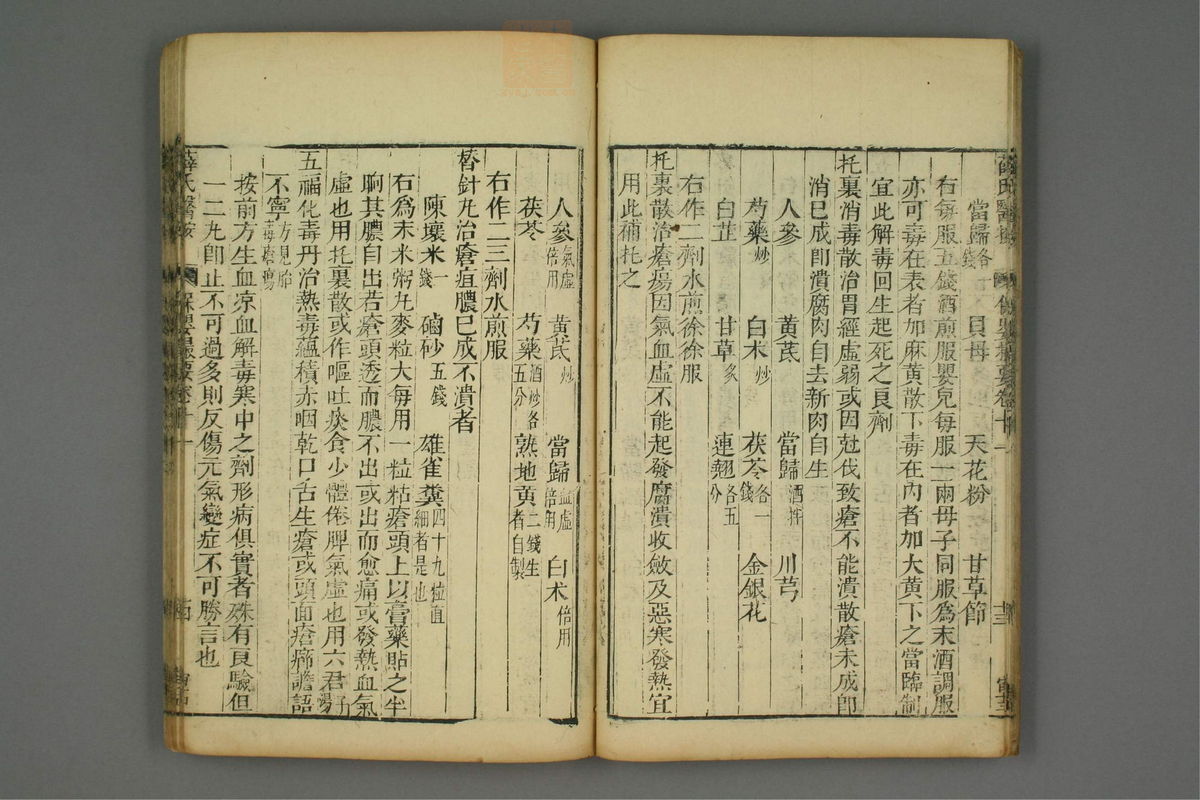 薛氏醫按 保嬰撮要卷十一 十三
當歸各錢 貝母 天花粉 甘草節
右每服五錢酒煎服嬰兒每服一兩母子同服爲末酒調服
亦可毒在表者加麻黄散下毒在內者加大黄下之當臨制
宜此解毒回生起死之良劑
托裏消毒散治胃經虛弱或因尅伐致瘡不能潰散瘡未成卽
消已成卽潰腐肉自去新肉自生
人參 黄芪 當歸酒拌 川芎
芍藥炒 白术炒 茯苓各一錢 金銀花
白芷 甘草炙 連翹各五分
右作二劑水煎徐徐服
托裏散治瘡瘍因氣血虛不能起發腐潰收斂及惡寒發熱宜
用此補托之
人參氣虛倍用 黄芪炒 當歸血虛倍用 白术倍用
茯苓 芍藥酒炒各五分 熟地黄二錢生者自製
右作二三劑水煎服
替針丸治瘡疽膿已成不潰者
陳壞米一錢 硇砂五錢 雄雀糞四十九粒直細者是也
右爲末米粥丸麥粒大每用一粒粘瘡頭上以膏藥貼之半
晌其膿自出若瘡頭透而膿不出或出而愈痛或發熱血氣
虛也用托裏散或作嘔吐痰食少體倦脾氣虛也用六君子湯
五福化毒丹治熱毒蘊積亦咽乾口舌生瘡或頭面瘡癤譫語
不寧方見胎毒瘡瘍
按前方生血凉血解毒寒中之劑形病俱實者殊有良驗但
一二丸卽止不可過多則反傷元氣變症不可勝言也
薛氏醫按 保嬰撮要卷十一 十四